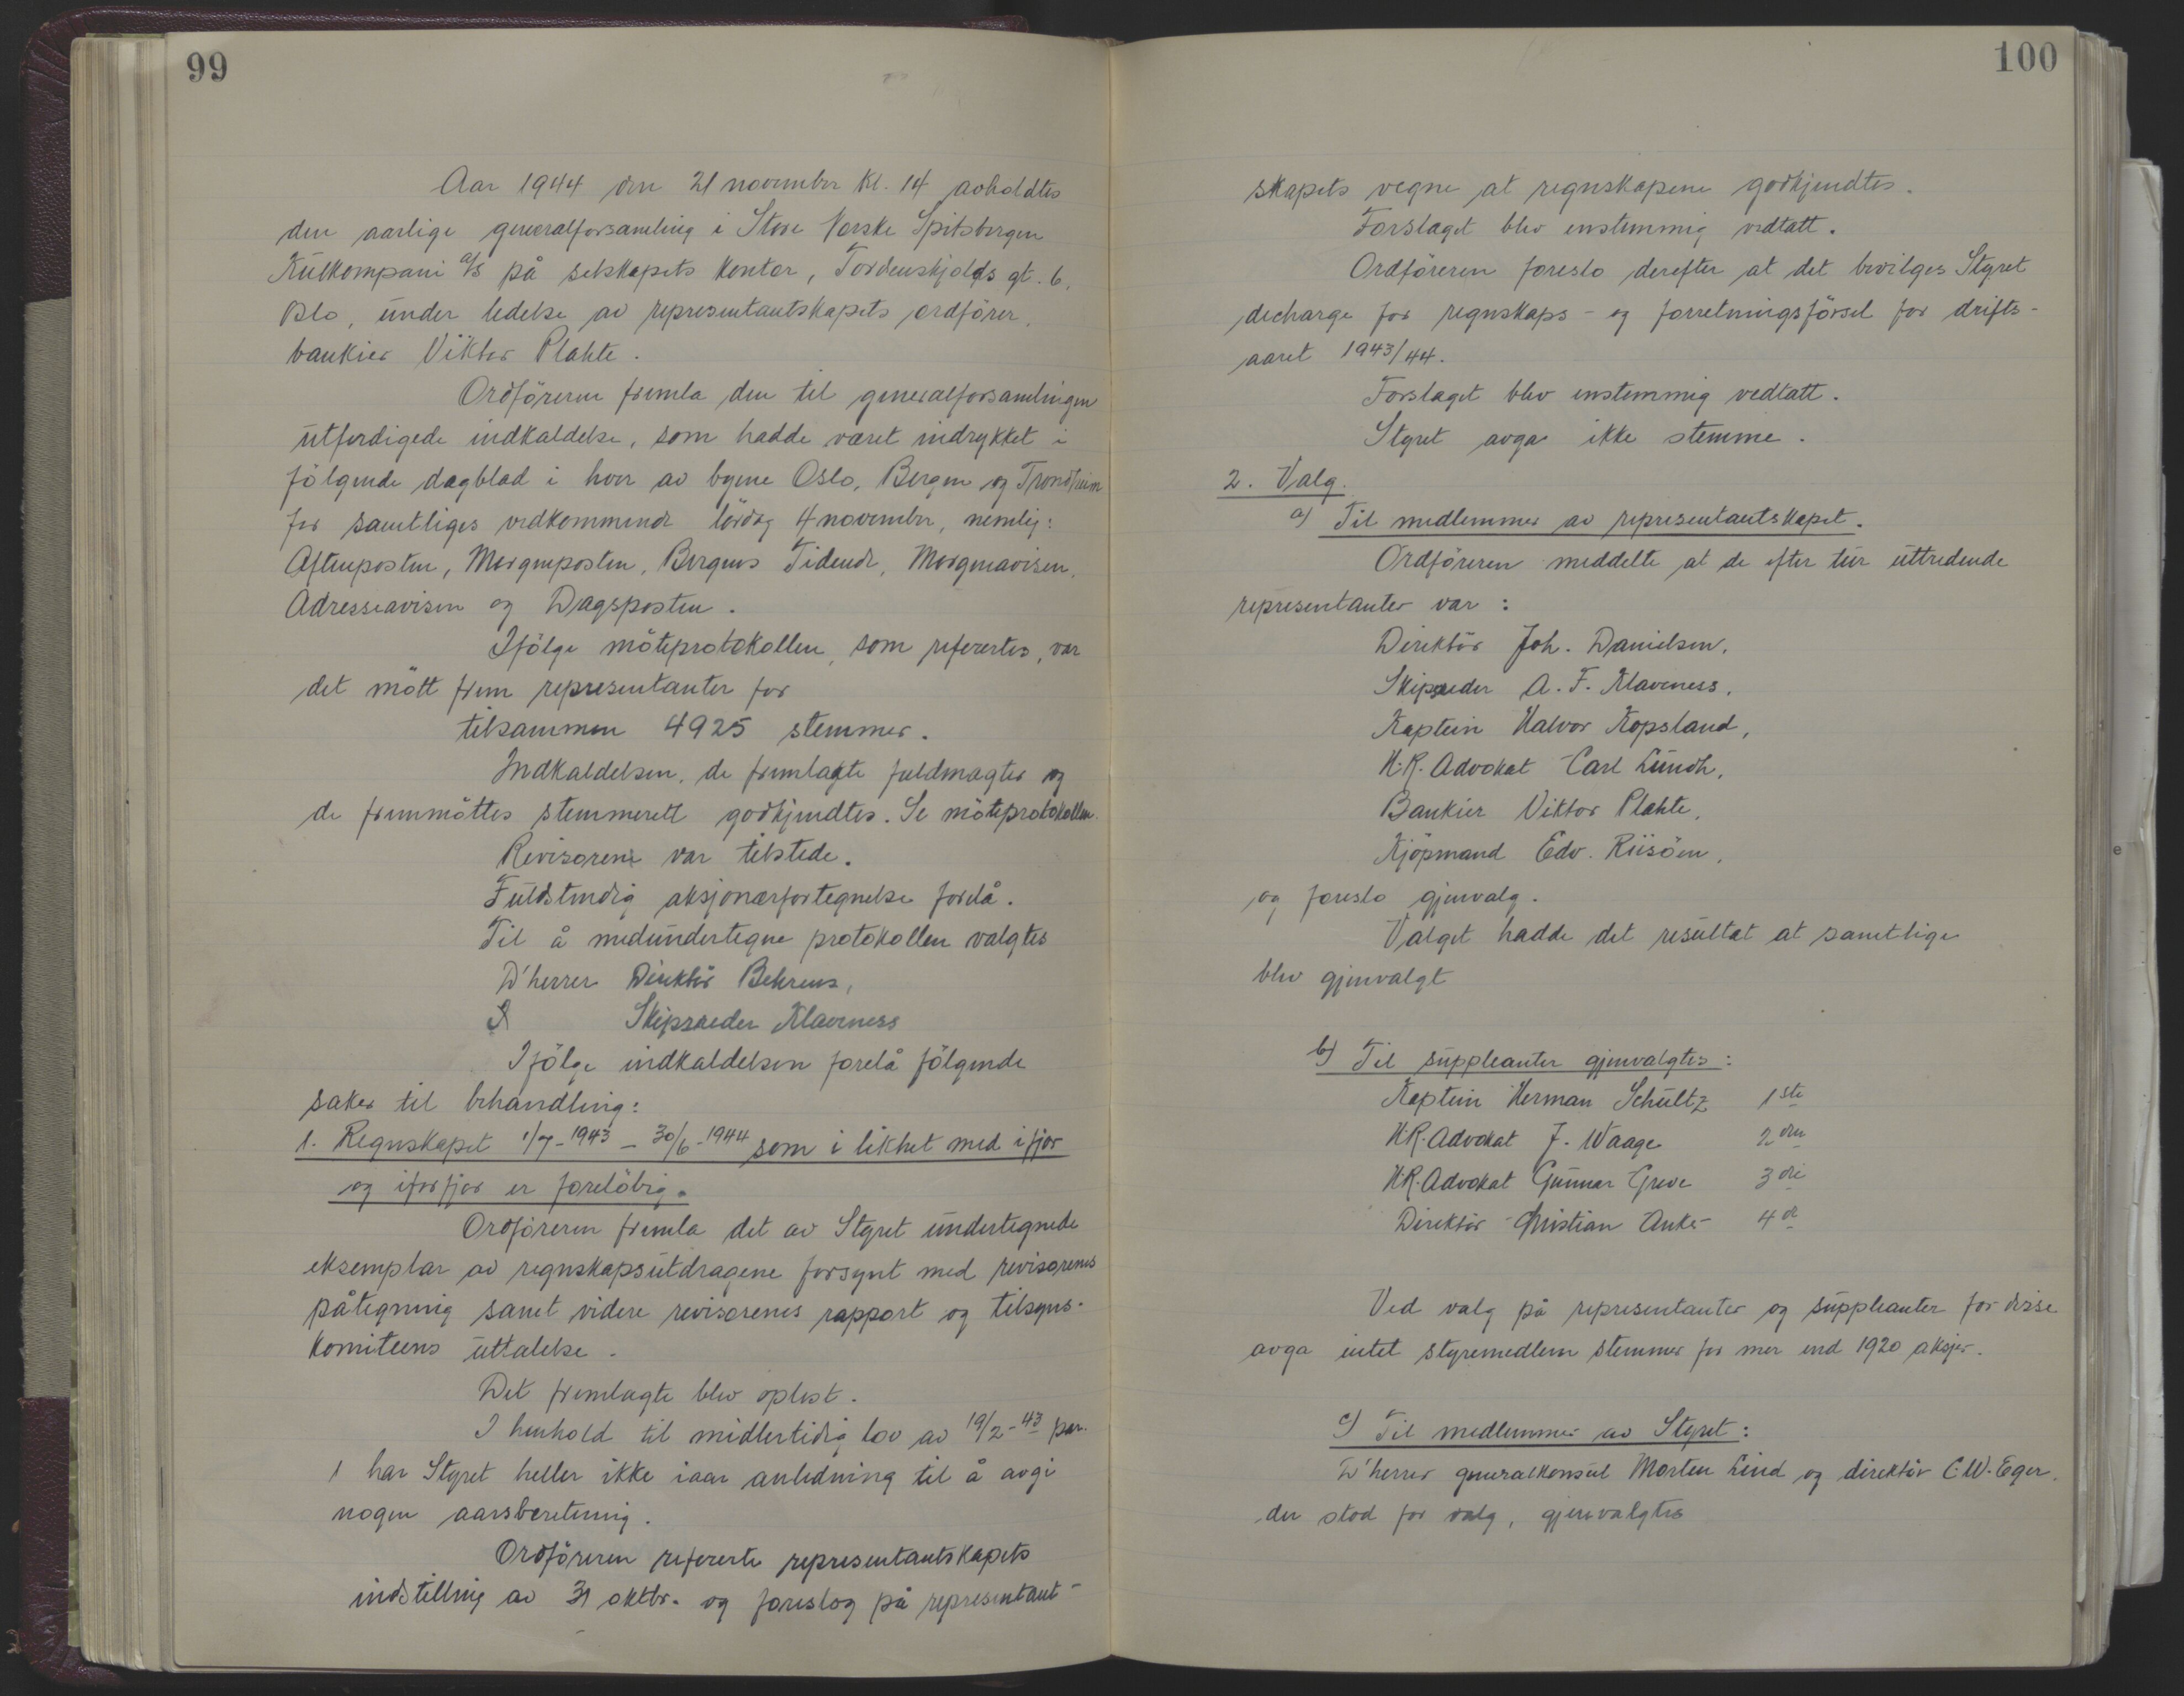 99
Aar 1944 den 21 november kl. 14 avholdtes
den aarlige generalforsamling i Store Norske Spitsbergen
Kulkompani a/s på selskapets kontor, Tordenskjolds gt. 6,
Oslo, under ledelse av representantskapets ordfører,
bankier Viktor Plahte.
Ordføreren fremla den til generalforsamlingen
utferdigede indkaldelse, som hadde været indrykket i
følgende dagblad i hver av byene Oslo, Bergen og Trondheim
for samtliges vedkommende lørdag 4 november, nemlig:
Aftenposten, Morgenposten, Bergens Tidende, Morgenavisen,
Adresseavisen og Dagsposten.
Ifølge møteprotokollen, som refertes, var
det møtt frem representanter for
tilsammen 4925 stemmer.
Indkaldelsen, de fremlagte fuldmagter og
de fremmøttes stemmerett godkjendtes. Se møteprotokollen.
Revisorene var tilstede.
Fuldstendig aksjonærfortegnelse forelå.
Til å medundertegne protokollen valgtes
D'herrer Direktør Behrens,
Skipsreder Klaveness
Ifølge indkaldelsen forelå følgende
saker til behandling:
1. Regnskapet 1/7-1943 – 30/6-1944 som i likhet med ifjor
og iforfjor er foreløbig.
Ordføreren fremla det av Styret undertegnede
eksemplar av regnskapsutdragene forsynt med revisorenes
påtegning samt videre revisorenes rapport og tilsyns-
komiteens uttalelse.
Det fremlagte blev oplest.
I henhold til midlertidig lov av 19/2-43 par.
1 har Styret heller ikke iaar anledning til å avgi
nogen aarsberetning.
Ordføreren refererte representantskapets
indstilling av 31 oktbr. og foreslog på representant-
100
skapets vegne at regnskapene godkjendtes.
Forslaget blev enstemmig vedtatt.
Ordføreren foreslo derefter at det bevilges Styret
decharge for regnskaps- og forretningsførsel for drifts-
aaret 1943/44.
Forslaget blev enstemmig vedtatt.
Styret avga ikke stemme.
2. Valg.
a) Til medlemmer av representantskapet.
Ordføreren meddelte at de efter tur uttredende
representanter var:
Direktør Joh. Danielsen,
Skipsreder A. F. Klaveness,
Kaptein Halvor Kopsland,
H.R. Advokat Carl Lundh,
Bankier Viktor Plahte,
Kjøpmand Edv. Riisøen,
og foreslo gjenvalg.
Valget hadde det resultat at samtlige
blev gjenvalgt
b) Til suppleanter gjenvalgtes:
Kaptein Herman Schultz 1ste
H.R. Advokat J. Waage 2den
H.R. Advokat Gunnar Greve 3die
Direktør Christian Anker 4de
Ved valg på representanter og suppleanter for disse
avga intet styremedlem stemmer for mer end 1920 aksjer.
c) Til medlemmer av Styret:
D'herrer generalkonsul Morten Lind og direktør C.W. Eger,
der stod for valg, gjenvalgtes